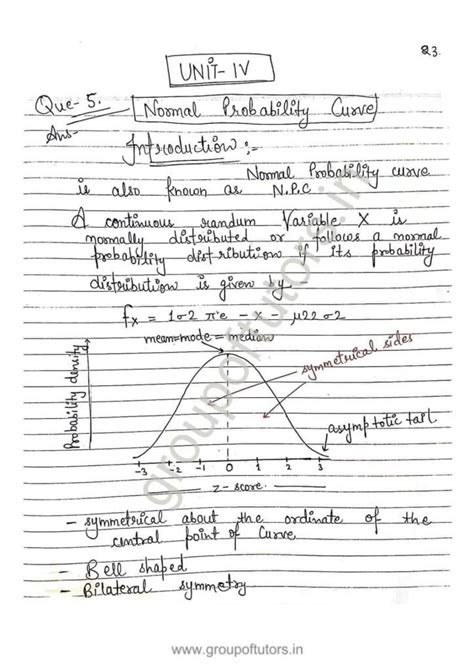 23.
UNIT-IV
Que-5. Normal Probability Curve
Ans-
Introduction :-
Normal Probability curve
is also known as N.P.C
A continuous random Variable X is
normally distributed or follows a normal
probability distribution if its probability
distribution is given by
fx = 1σ2 πe - x - μ22σ2
mean=mode=median
symmetrical sides
Probability density
asymptotic tail
-3 -2 -1 0 1 2 3
z-score
- symmetrical about the ordinate of the
central point of Curve
- Bell shaped
- Bilateral symmetry
groupoftutors.in
www.groupoftutors.in